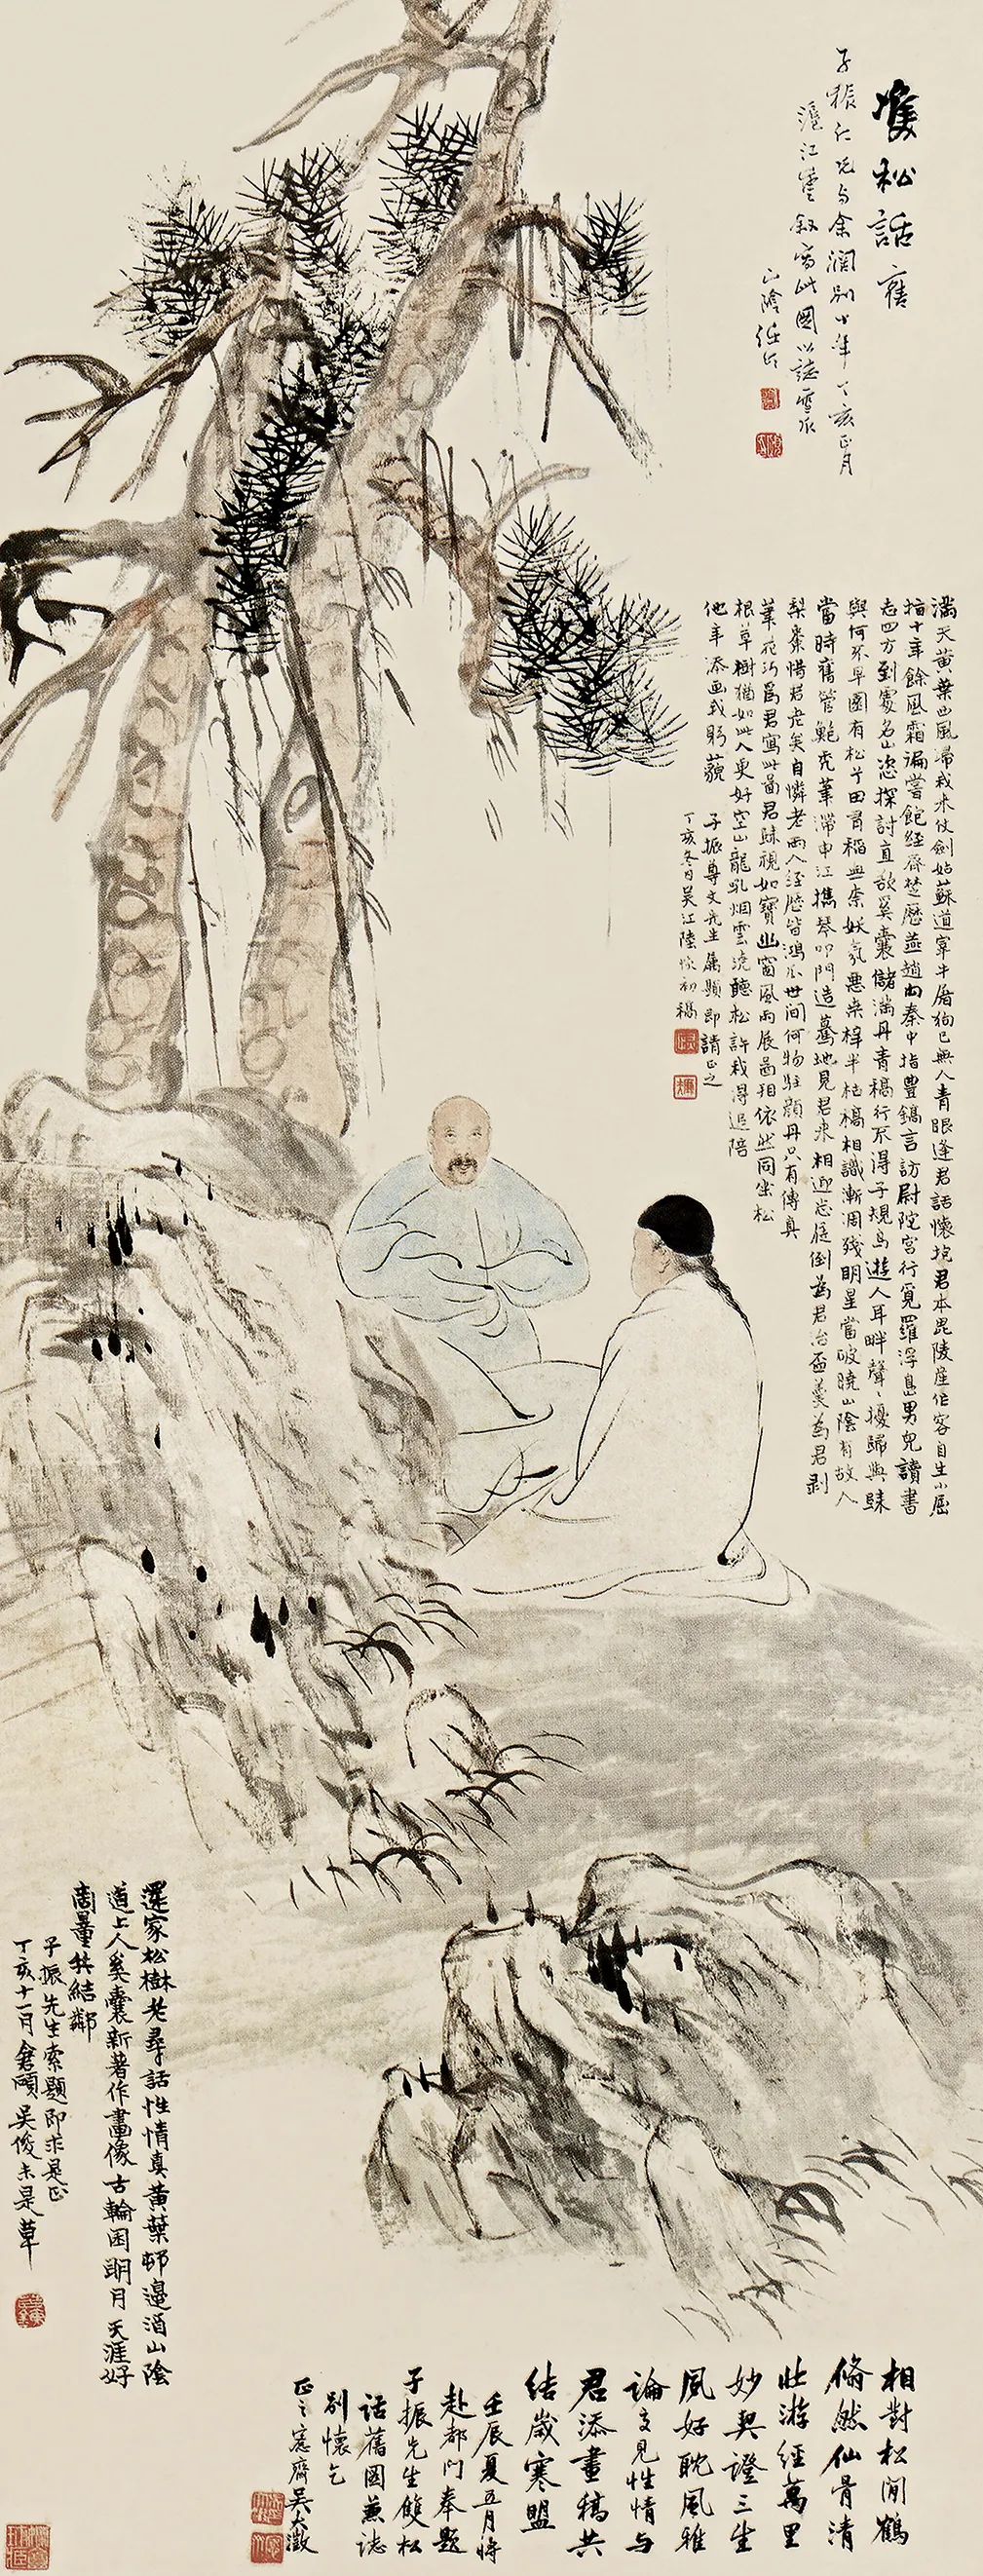 雙松話舊
子振仁兄與余濶別十年丁亥正月
滬江重敘寫此圖以誌雪爪
山陰任頤
滿天黃葉西風埽我來仗劍姑蘇道宰牛屠狗已無人青眼逢君話懷抱君本毘陵產作客自生小屈
指十年餘風霜徧嘗飽經齊楚歷燕趙西秦中指豐鎬言訪尉陀宮行覓羅浮島男兒讀書
志四方到處名山恣探討直欲奚囊儲滿丹青稿行不得子規鳥遊人耳畔聲聲擾歸與歸
與何不早園有松兮田有稻無奈妖氛惡柴桿半枯槁相識漸凋殘明星當破曉山陰有故人
當時舊管鮑禿筆滯申江攜琴叩門造驀地見君來相迎忘屣倒為君治酒羹為君剥
梨棗惜君老矣自憐老兩人經歷皆鴻爪世間何物駐顏丹只有傳真
筆花巧為君寫此圖君歸視如寶幽窗風雨展圖相依然同坐松
根草樹猶如此人更好空山龍吼烟雲流聽松許我得追陪
他年添画我躬藐
子振尊丈先生屬題即請正之
丁亥冬日吳江陸恢初稿
選家松樹老尋話性情真黃葉邨邊酒山陰
道上人奚囊新著作畫像古輪囷明月天涯好
商量共結鄰
子振先生索題即求是正
丁亥十一月倉碩吳俊未是草
相對松間鶴
翛然仙骨清
壯游經萬里
妙契證三生
夙好耽風雅
論交見性情與
君添畫稿共
結歲寒盟
壬辰夏五月將
赴都門奉題
子振先生雙松
話舊圖兼誌
別懷乞
正之愙齋吳大澂